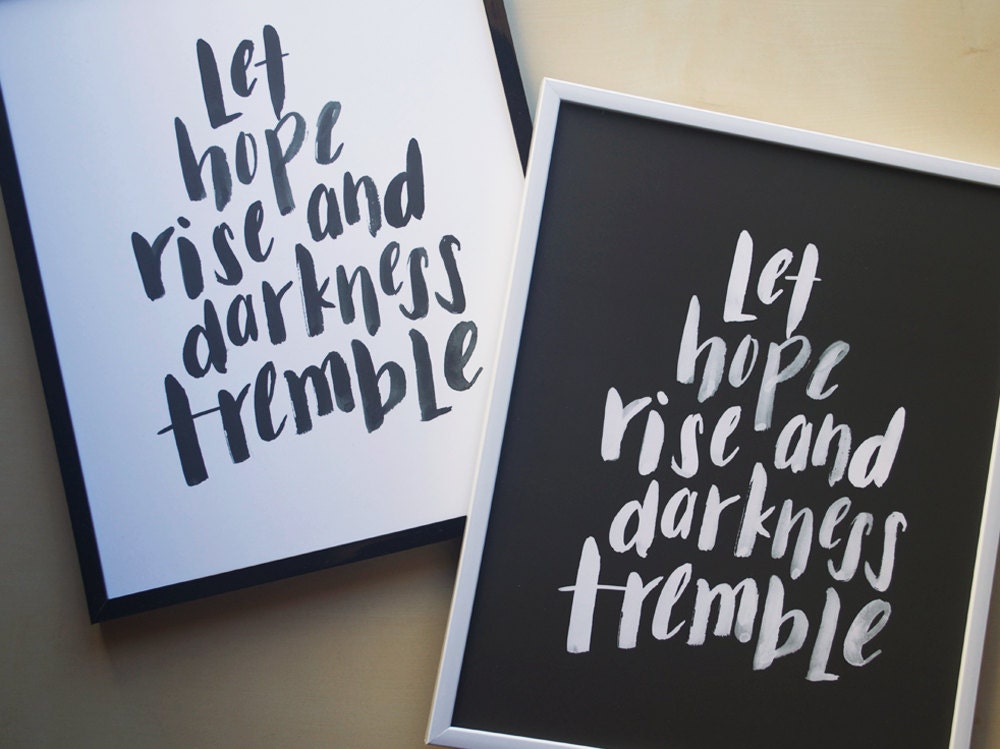 Let
hope
rise and
darkness
tremble
Let
hope
rise and
darkness
tremble